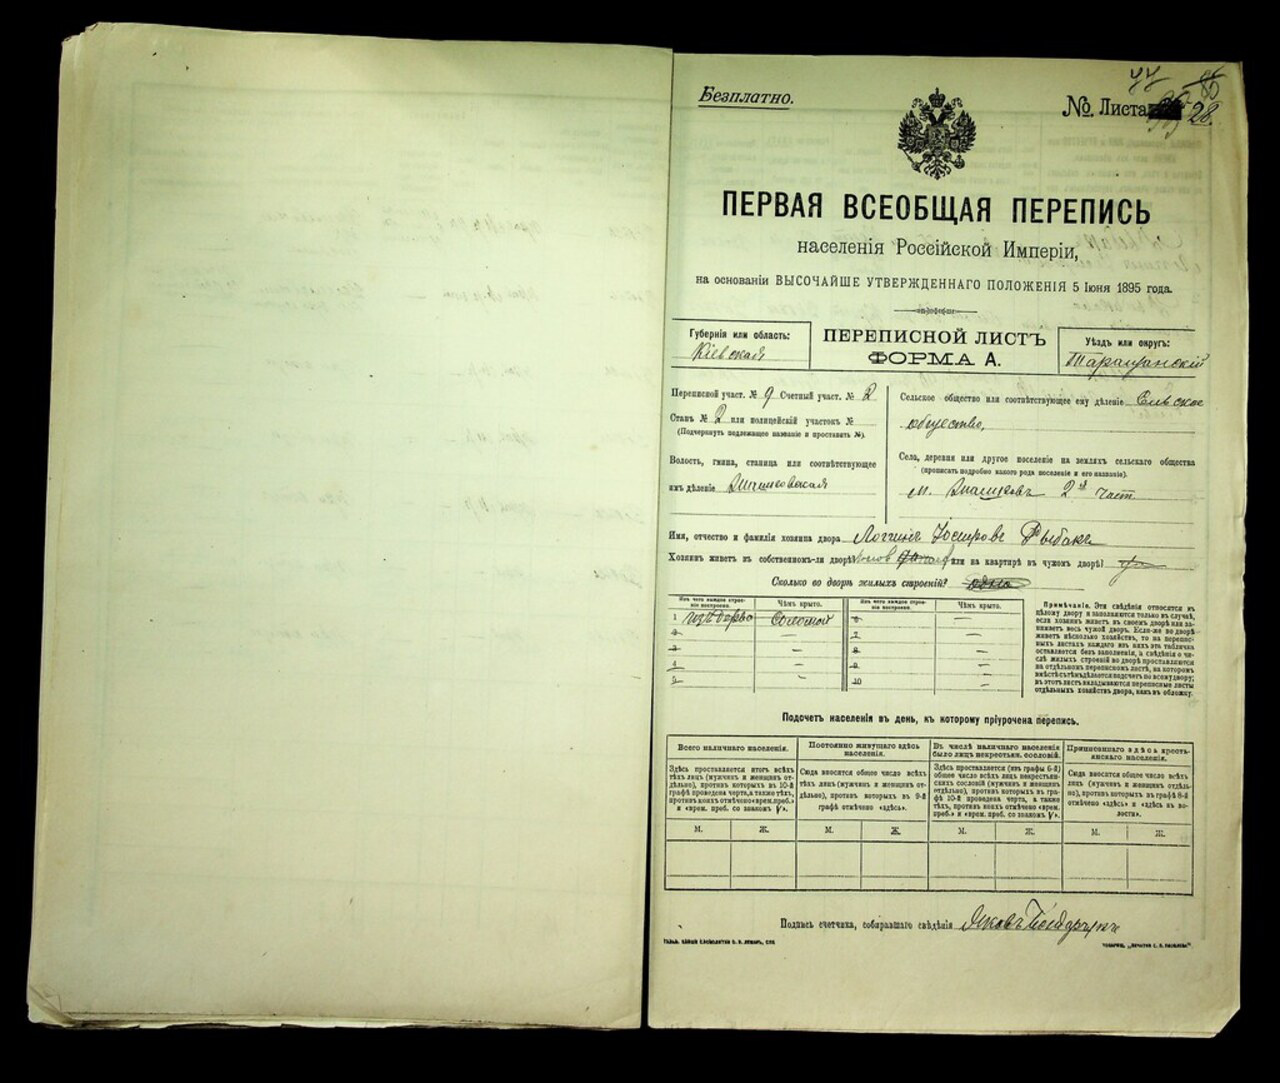 Безплатно.
№ Листа 28.
ПЕРВАЯ ВСЕОБЩАЯ ПЕРЕПИСЬ
населенія Россійской Имперіи,
на основаніи ВЫСОЧАЙШЕ УТВЕРЖДЕННАГО ПОЛОЖЕНІЯ 5 Іюня 1895 года.
Губернія или область:
Кіевская
ПЕРЕПИСНОЙ ЛИСТЪ
ФОРМА А.
Уѣздъ или округъ:
Таращанскій
Переписной участ. № 9 Счетный участ. № 2
Станъ № 2 или полицейскій участокъ №
(Подчеркнуть подлежащее названіе и проставить №).
Волость, гмина, станица или соотвѣтствующее
имъ дѣленіе
Сельское общество или соотвѣтствующее ему дѣленіе
общество,
Села, деревня или другое поселеніе на земляхъ сельскаго общества
(прописать подробно какого рода поселеніе и его названіе).
м. 2й част
Имя, отчество и фамилія хозяина двора
Хозяинъ живетъ въ собственномъ-ли дворѣ или на квартирѣ въ чужомъ дворѣ?
Сколько во дворѣ жилыхъ строеній? одно
Изъ чего каждое строеніе построено.
Чѣмъ крыто.
Изъ чего каждое строеніе построено.
Чѣмъ крыто.
1 изъ дерва Соломой 6
2 7
3 8
4 9
5 10
Примѣчаніе. Эти свѣдѣнія относятся къ
цѣлому двору и заполняются только въ случаѣ,
если хозяинъ живетъ въ своемъ дворѣ или за-
нимаетъ весь чужой дворъ. Если-же во дворѣ
живетъ нѣсколько хозяйствъ, то на перепис-
ныхъ листахъ каждаго изъ нихъ эта табличка
оставляется безъ заполненія, а свѣдѣнія о чи-
слѣ жилыхъ строеній во дворѣ проставляются
на отдѣльномъ переписномъ листѣ, на которомъ
вмѣстѣ съ тѣмъ дѣлается подсчетъ по всему двору;
въ этотъ листъ вкладываются переписные листы
отдѣльныхъ хозяйствъ двора, какъ въ обложку.
Подсчетъ населенія въ день, къ которому пріурочена перепись.
Всего наличнаго населенія.
Здѣсь проставляется итогъ всѣхъ
тѣхъ лицъ (мужчинъ и женщинъ от-
дѣльно), противъ которыхъ въ 10-й
графѣ проведена черта, а также тѣхъ,
противъ коихъ отмѣчено «врем. преб.»
и «врем. преб. со знакомъ V».
Постоянно живущаго здѣсь
населенія.
Сюда вносится общее число всѣхъ
тѣхъ лицъ (мужчинъ и женщинъ от-
дѣльно), противъ которыхъ въ 9-й
графѣ отмѣчено «здѣсь».
Въ числѣ наличнаго населенія
было лицъ некрестьян. сословій.
Здѣсь проставляется (изъ графы 6-й)
общее число всѣхъ лицъ некрестьян-
скихъ сословій (мужчинъ и женщинъ
отдѣльно), противъ которыхъ въ гра-
фѣ 10-й проведена черта, а также
тѣхъ, противъ коихъ отмѣчено «врем.
преб.» и «врем. преб. со знакомъ V».
Приписаннаго здѣсь кресть-
янскаго населенія.
Сюда вносится общее число всѣхъ
лицъ (мужчинъ и женщинъ отдѣль-
но), противъ которыхъ въ графѣ 8-й
отмѣчено «здѣсь» и «здѣсь въ во-
лости».
М. Ж. М. Ж. М. Ж. М. Ж.
Подпись счетчика, собиравшаго свѣдѣнія Яковъ